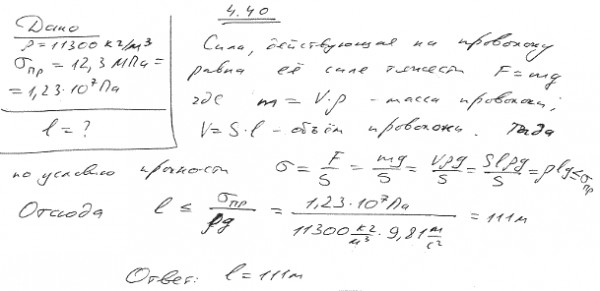 4.40
Дано
ρ = 11300 кг/м³
σпр = 12,3 МПа =
= 1,23·10⁷ Па
l = ?
Сила, действующая на проволоку
равна её силе тяжести F = mg
где m = V·ρ - масса проволоки;
V = S·l - объём проволоки. Тогда
по условию прочности σ = F/S = mg/S = Vρg/S = Slρg/S = ρlg ≤ σпр
Отсюда l ≤ σпр/ρg = 1,23·10⁷ Па / 11300 кг/м³ · 9,81 м/с² = 111 м
Ответ: l = 111 м